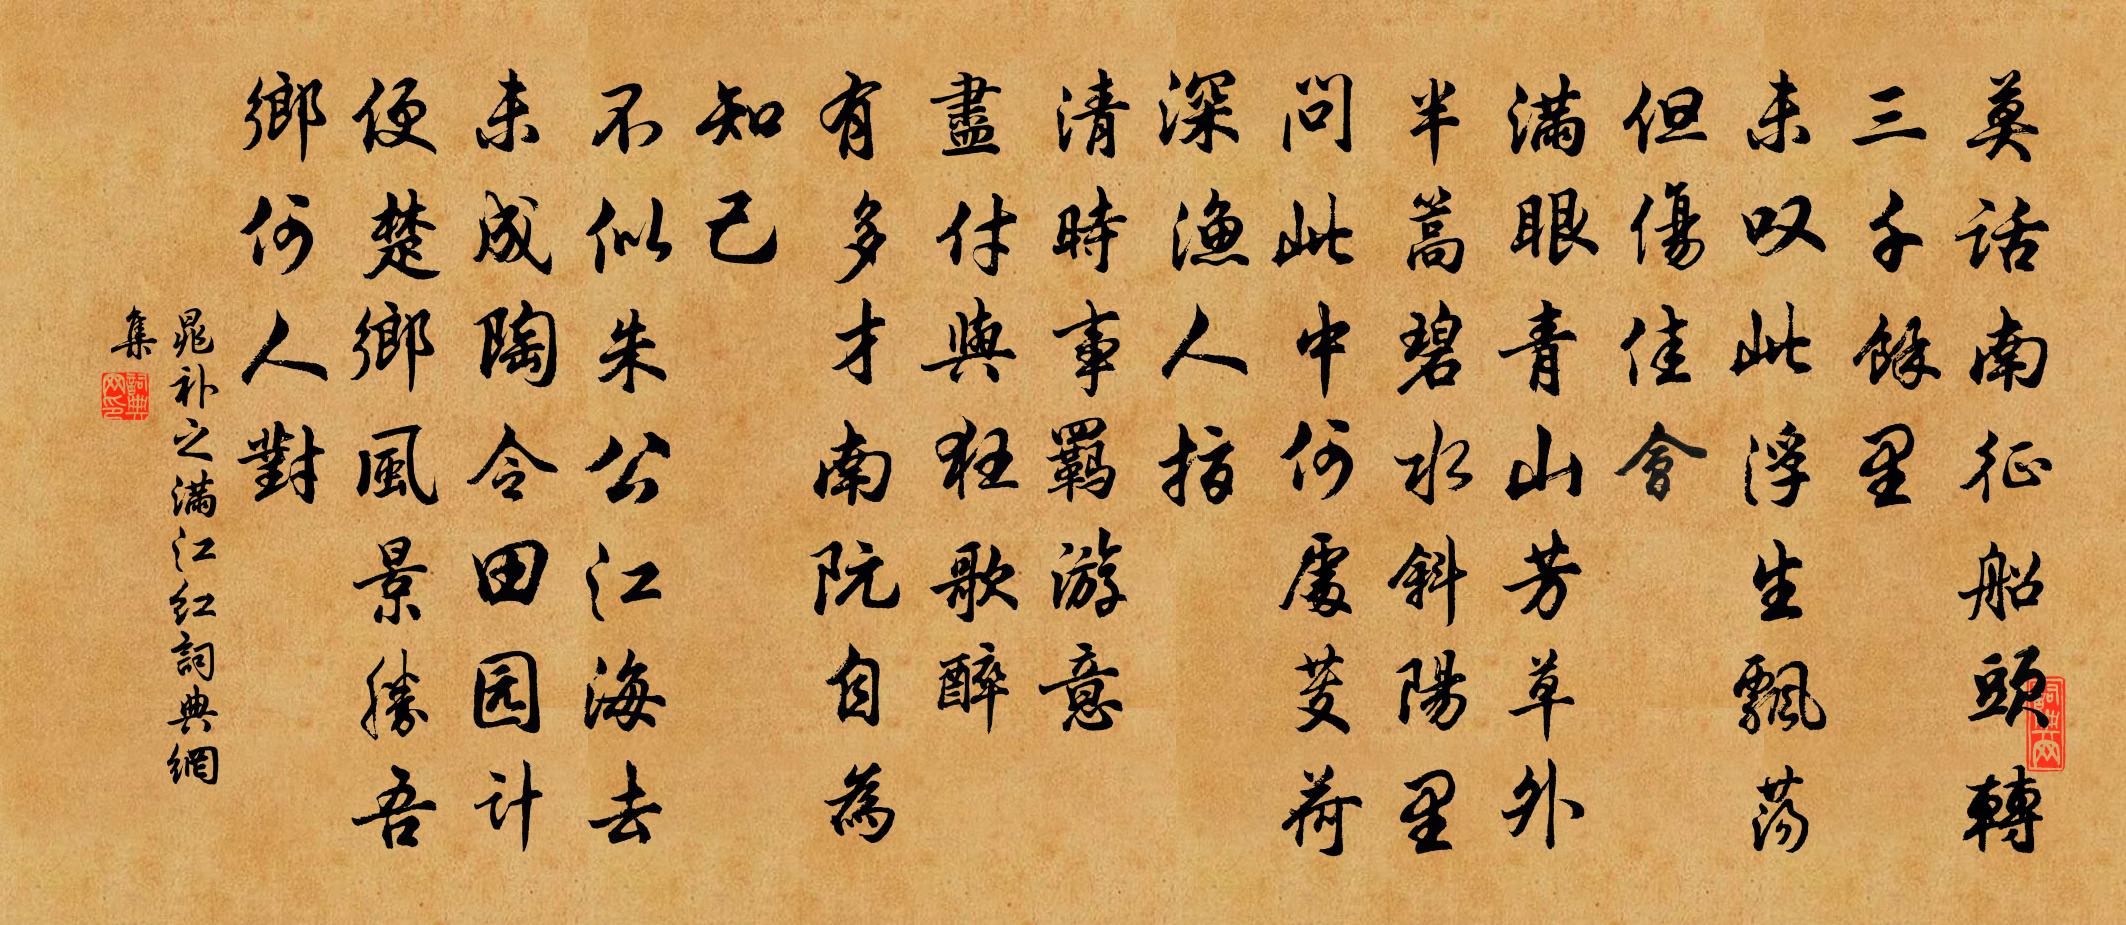 莫話南征船頭轉
三千餘里
未叹此浮生飄蕩
但傷佳會
滿眼青山芳草外
半蒿碧水斜陽里
問此中何處芰荷
深漁人指
清時事羈游意
盡付與狂歌醉
有多才南阮自為
知己
不似朱公江海去
未成陶令田园计
便楚鄉風景勝吾
鄉何人對
晁补之满江红詞典網
集
詞典网印
詞典网